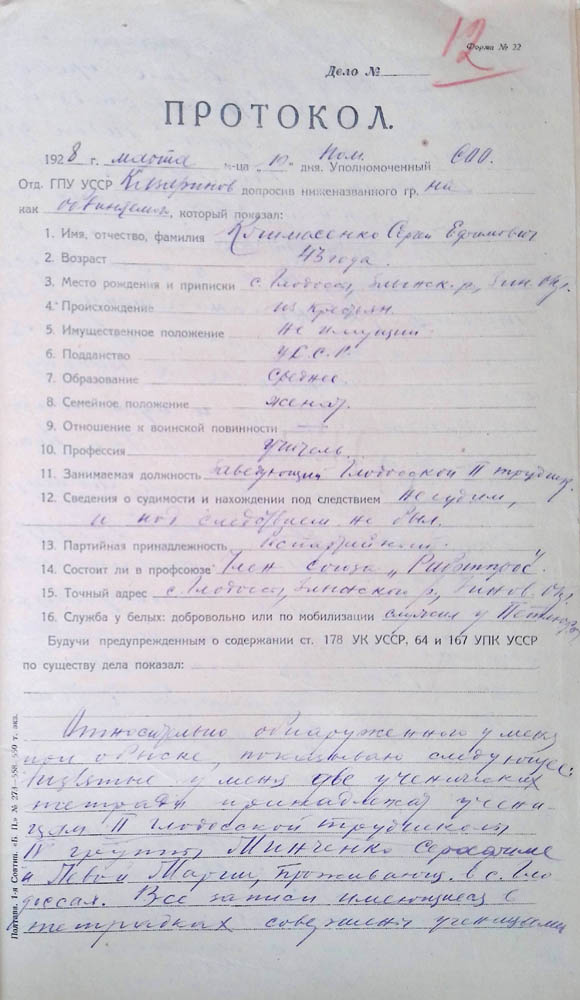 12
Форма № 22
Дело №
ПРОТОКОЛ.
1928 г. м-ца „10" дня. Пом. Уполномоченный СОО.
Отд. ГПУ УССР допросив ниженазванного гр. на
как обвиняемого, который показал:
1. Имя, отчество, фамилия Сергей Ефимович
2. Возраст 43 года.
3. Место рождения и приписки с. Глодоссы, Зин. Окр.
4. Происхождение из крестьян.
5. Имущественное положение не имущий.
6. Подданство У.С.С.Р.
7. Образование среднее.
8. Семейное положение женат.
9. Отношение к воинской повинности —
10. Профессия учитель.
11. Занимаемая должность Заведующий Глодосской II трудшк.
12. Сведения о судимости и нахождении под следствием не судим,
и под следствием не был.
13. Партийная принадлежность беспартийный.
14. Состоит ли в профсоюзе Член союза „Рабпрос".
15. Точный адрес с. Глодоссы, р., Зинов. Окр.
16. Служба у белых: добровольно или по мобилизации служил у Петлюры
Будучи предупрежденным о содержании ст. 178 УК УССР, 64 и 167 УПК УССР
по существу дела показал:
Относительно обнаруженного у меня
при обыске, показываю следующее:
Взятые у меня две ученических
тетради принадлежат учени-
цам II Глодосской трудшколы
IV группы Минченко Серафиме
и Левой Марии, проживающ. в с. Гло
доссах. Все записи имеющиеся в
тетрадках совершены ученицами
Полтава. 1-я Совтип. «Б. П.» № 273—558—550 т. экз.